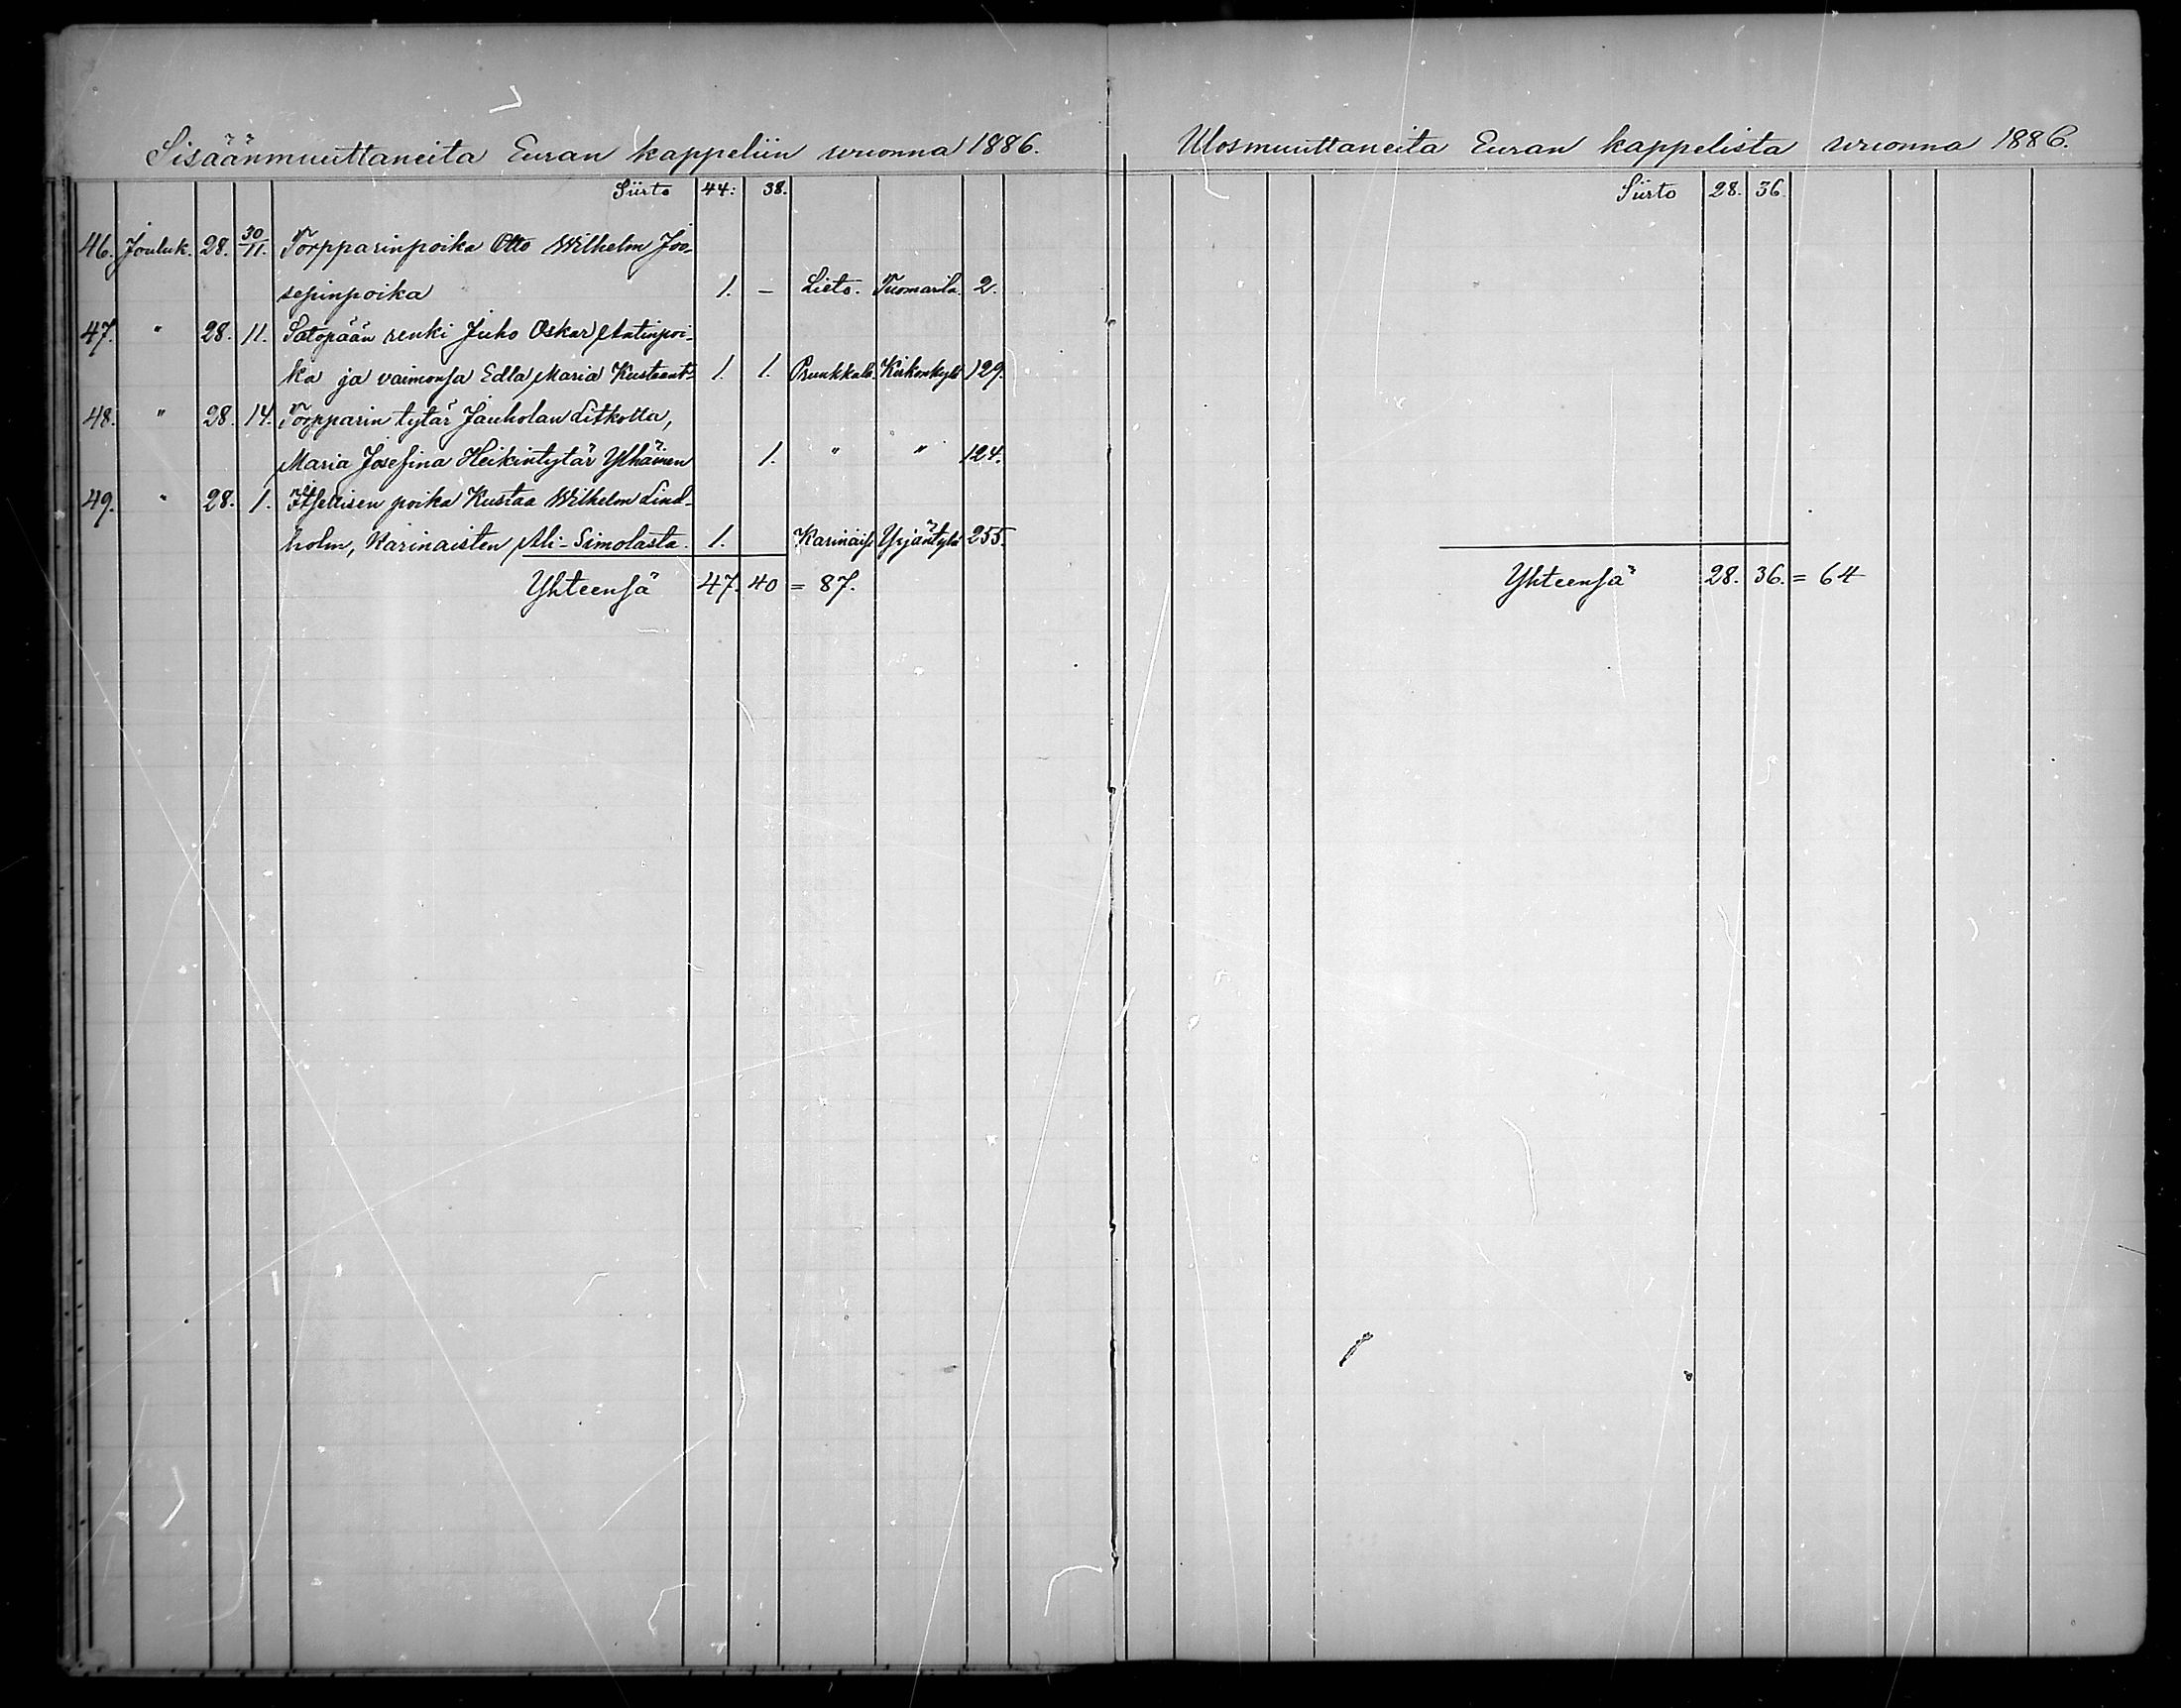 Sisäänmuuttaneita Euran kappeliin vuonna 1886.
Siirto 44: 38.
46. Jouluk. 28. 30/11. Torpparinpoika Otto Wilhelm Joo-
sepinpoika 1. – Lieto. Tuomarila. 2.
47. " 28. 11. Satopään renki Juho Oskar Antinpoi-
ka ja vaimonsa Edla Maria Kustaant: 1. 1. Prunkkala. Kirkonkylä 129.
48. " 28. 14. Torpparin tytär Jauholan
Maria Josefina Heikintytär Ylhäinen 1. " " 124.
49. " 28. 1. Itsellisen poika Kustaa Wilhelm Lind-
holm, Karinaisten Ali-Simolasta. 1. Karinais. Yrjäntylä 255.
Yhteensä 47. 40 = 87.
Ulosmuuttaneita Euran kappelista vuonna 1886.
Siirto 28. 36.
Yhteensä 28. 36. = 64